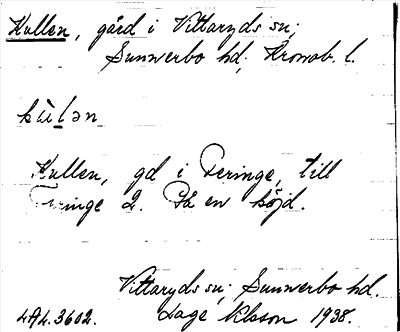 Kullen, gård i Vittaryds sn;
Sunnerbo hd; Kronob. l.
kùlən
Kullen, gd i Feringe, till
Feringe 2. På en höjd.
Vittaryds sn; Sunnerbo hd.
4A4.3602. Lage Nilsson 1938.